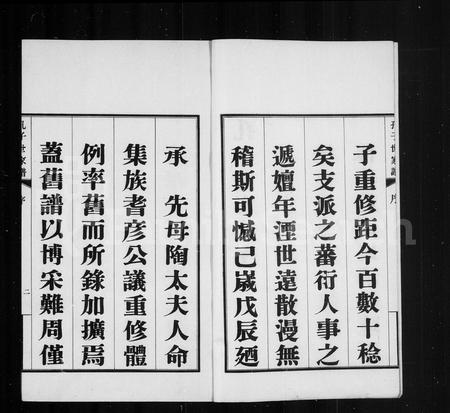 子重修距今百數十稔
矣支派之蕃衍人事之
遞嬗年湮世遠散漫無
稽斯可憾已歲戊辰廼
承　先母陶太夫人命
集族耆彥公議重修體
例率舊而所錄加擴焉
蓋舊譜以博采難周僅
孔子世家譜
序
二